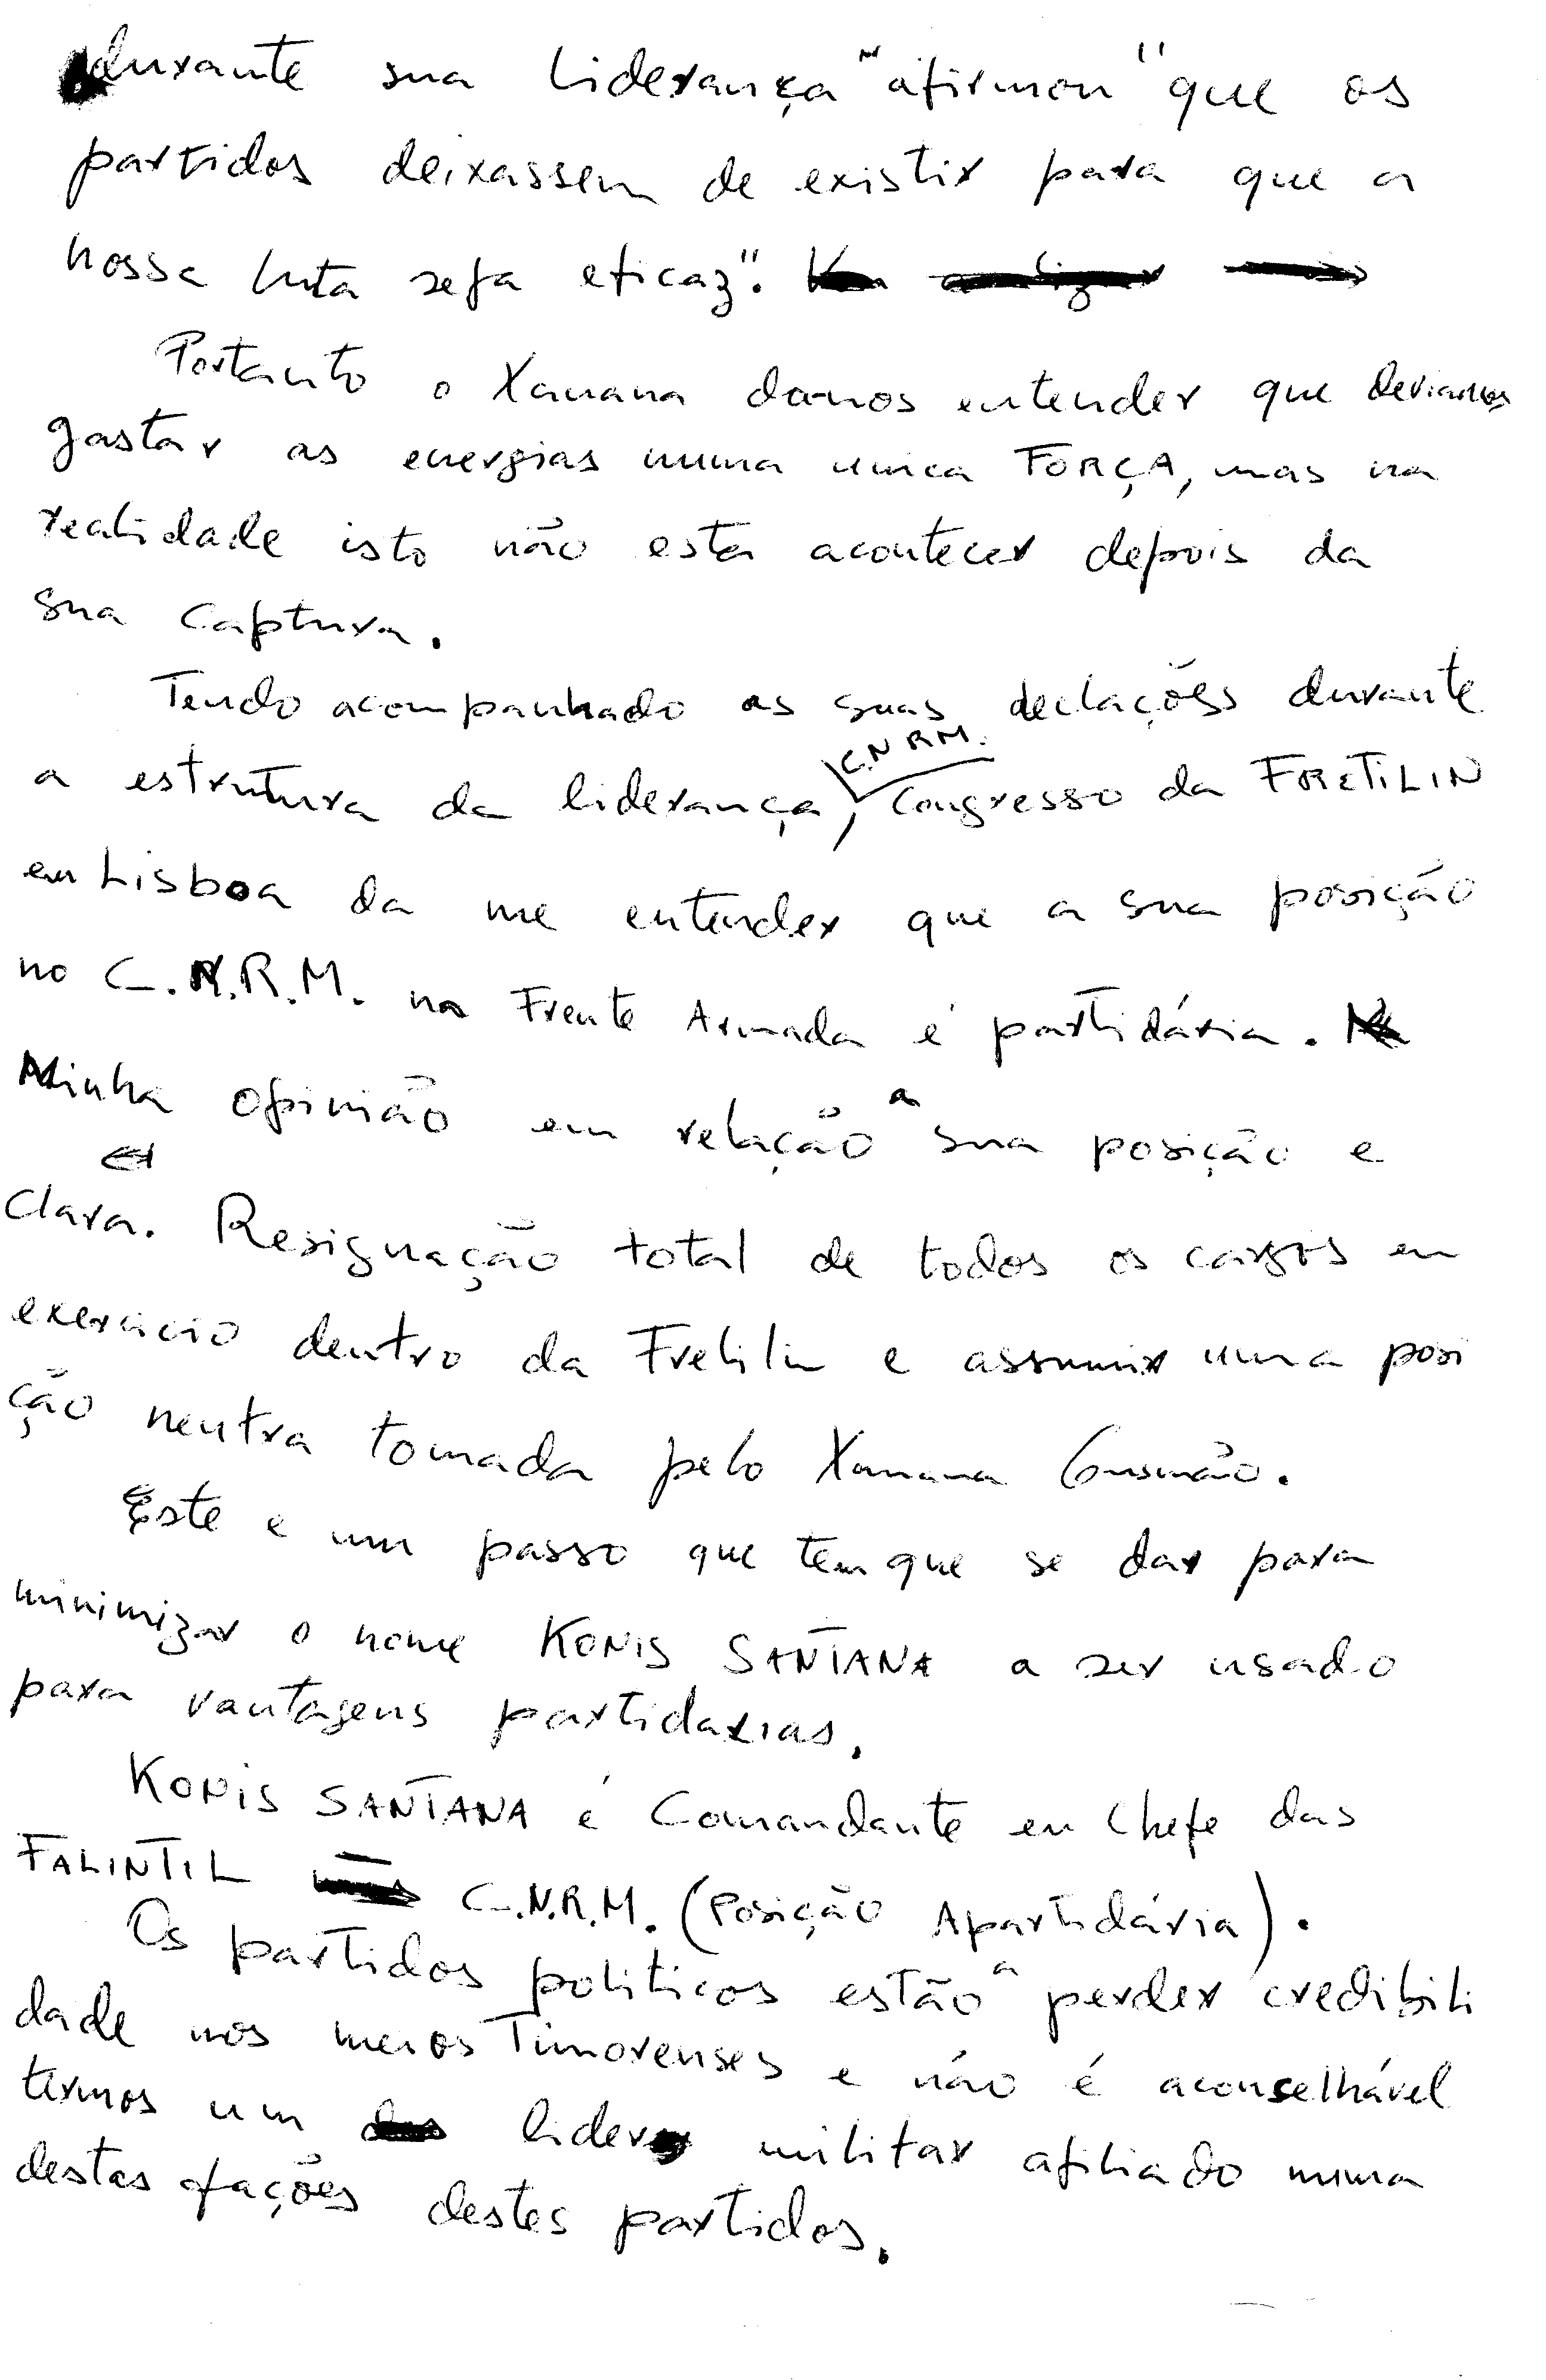 durante sua liderança "afirmou" que os
partidos deixassem de existir para que a
nossa luta seja eficaz".
Portanto o Xanana da-nos entender que deviamos
gastar as energias numa unica FORÇA, mas na
realidade isto não esta acontecer depois da
sua captura.
Tendo acompanhado as suas declações durante
a estrutura da liderança, C.N.R.M. Congresso da FRETILIN
em Lisboa da me entender que a sua posição
no C.N.R.M. na Frente Armada é partidária.
Minha opinião em relação a sua posição e
clara. Resignação total de todos os cargos em
exercicio dentro da Fretilin e assumir uma posi
ção neutra tomada pelo Xanana Gusmão.
Este e um passo que tem que se dar para
minimizar o nome KONIS SANTANA a ser usado
para vantagens partidarias.
KONIS SANTANA é Comandante em Chefe das
FALINTIL C.N.R.M. (Posição Apartidária).
Os partidos politicos estão a perder credibili
dade nos meios Timorenses e não é aconselhável
termos um lider militar afiliado numa
destas fações destes partidos.